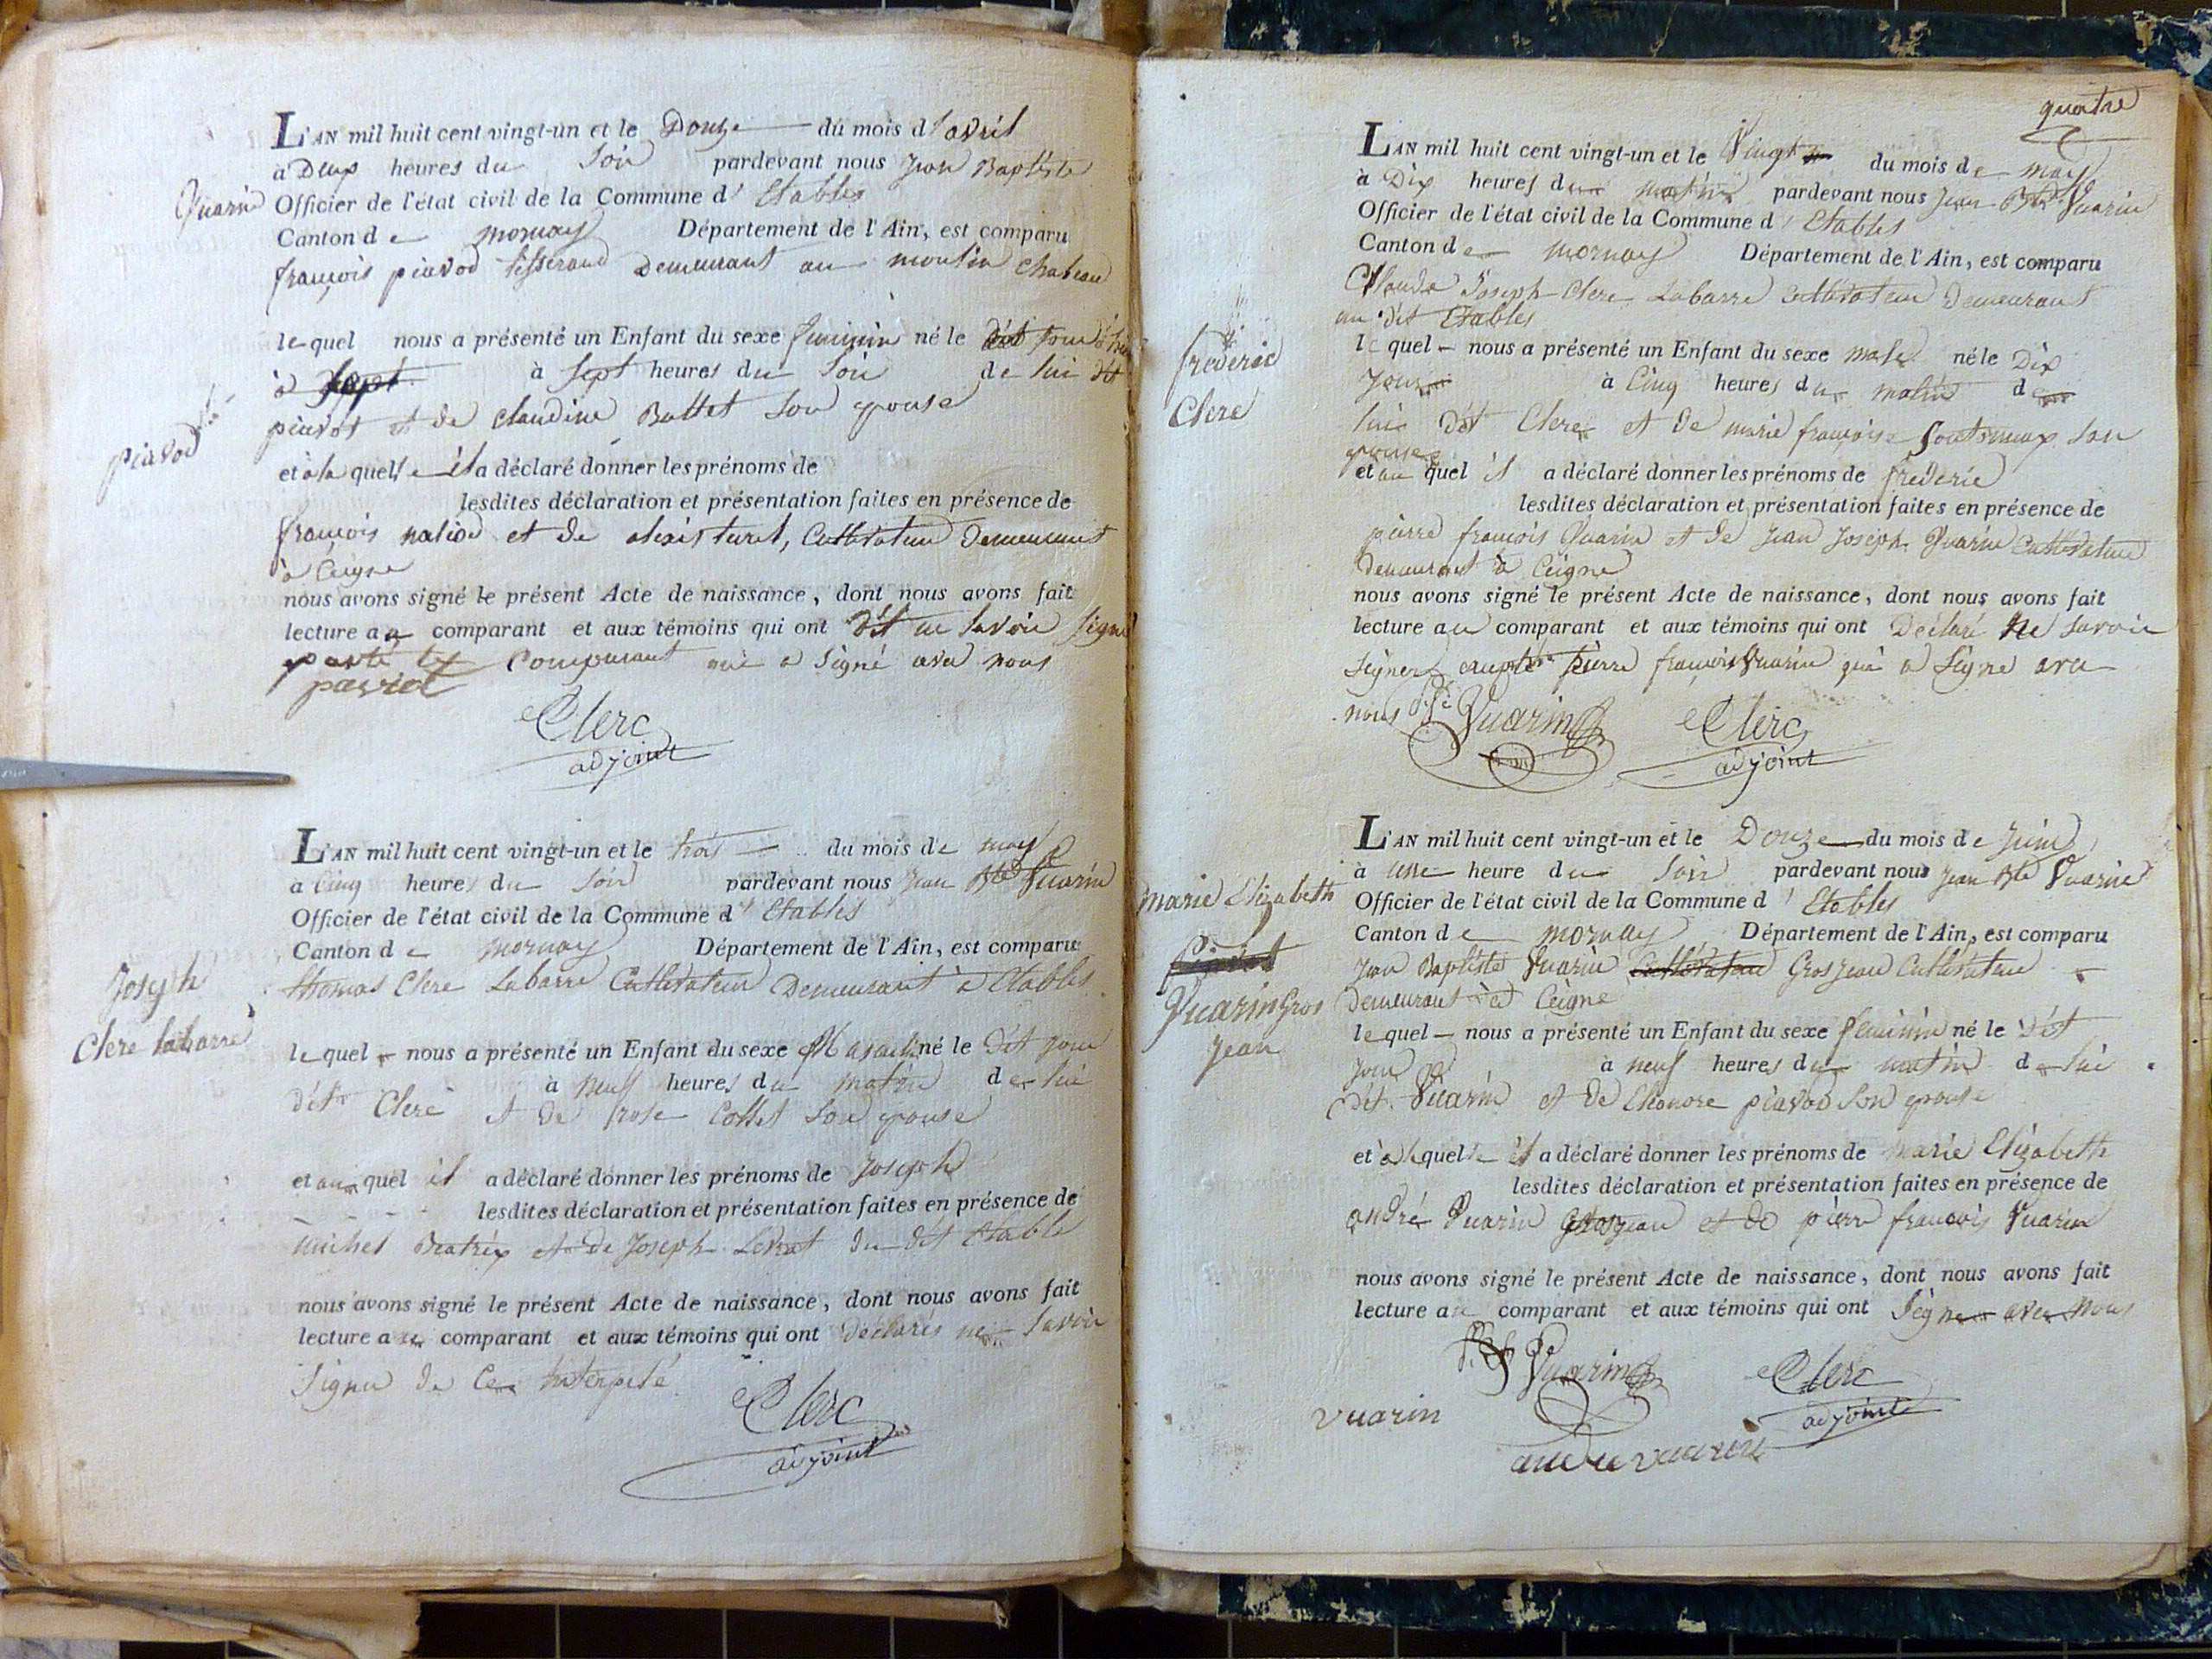 L'AN mil huit cent vingt-un et le Douze du mois d'avril
à Deux heures du Soir pardevant nous jean Baptiste
Vuarin Officier de l'état civil de la Commune d'Etables
Canton de mornay Département de l'Ain, est comparu
françois piavod tisserand Demeurant au moulin chateau
lequel nous a présenté un Enfant du sexe feminin né le dit jour
à Sept à Sept heures du Soir de lui dit
piavod
piavot et de claudine Buttet Son epouse
et à la quelle il a déclaré donner les prénoms de
lesdites déclaration et présentation faites en présence de
françois et de alexis turel, Cultivateur Demeurant
à Ceigne
nous avons signé le présent Acte de naissance, dont nous avons fait
lecture au comparant et aux témoins qui ont dit ne Savoir Signer
Comparant qui a Signé avec nous
Clerc
adjoint
L'AN mil huit cent vingt-un et le trois du mois de may
à Cinq heures du Soir pardevant nous jean Bte Vuarin
Officier de l'état civil de la Commune d'Etables
Canton de mornay Département de l'Ain, est comparu
Joseph
Clerc labarre
thomas Clerc Labarre Cultivateur Demeurant à Etables
lequel nous a présenté un Enfant du sexe Masculin né le Dit jour
à neuf heures du matin de lui
dit Clerc et de rose Cottet Son epouse
et au quel il a déclaré donner les prénoms de Joseph
lesdites déclaration et présentation faites en présence de
michel Beatrix et de Joseph Levrat du dit Etable
nous avons signé le présent Acte de naissance, dont nous avons fait
lecture au comparant et aux témoins qui ont déclarés ne Savoir
Signer de Ce interpelé
Clerc
adjoint
quatre
L'AN mil huit cent vingt-un et le Vingt du mois de may
à Dix heures du matin pardevant nous Jean Bte Vuarin
Officier de l'état civil de la Commune d'Etables
Canton de mornay Département de l'Ain, est comparu
Claude Joseph Clerc Labarre Cultivateur Demeurant
au dit Etables
frederic
Clerc
lequel nous a présenté un Enfant du sexe male né le Dix
jour à Cinq heures du matin de
lui Dit Clerc et de marie françoise Son
epouse
et au quel il a déclaré donner les prénoms de frederic
lesdites déclaration et présentation faites en présence de
pierre françois Vuarin et de Jean Joseph Vuarin Cultivateur
demeurant à Ceigne
nous avons signé le présent Acte de naissance, dont nous avons fait
lecture au comparant et aux témoins qui ont Déclaré Ne Savoir
Signer excepté Pierre françois Vuarin qui a Signé avec
nous Vuarin Clerc
adjoint
L'AN mil huit cent vingt-un et le Douze du mois de Juin
à une heure du Soir pardevant nous Jean Bte Vuarin
Officier de l'état civil de la Commune d'Etables
Canton de mornay Département de l'Ain, est comparu
marie Elizabeth
Vuarin Gros
jean
Jean Baptiste Vuarin Cultivateur Grosjean Cultivateur
Demeurant à Ceigne
lequel nous a présenté un Enfant du sexe feminin né le dit
jour à neuf heures du matin de lui
dit Vuarin et de Eleonore piavod Son epouse
et à laquelle il a déclaré donner les prénoms de marie Elizabeth
lesdites déclaration et présentation faites en présence de
andré Vuarin Grosjean et de pierre françois Vuarin
nous avons signé le présent Acte de naissance, dont nous avons fait
lecture au comparant et aux témoins qui ont Signe avec Nous
Vuarin Clerc
adjoint
vuarin
andre vuarin